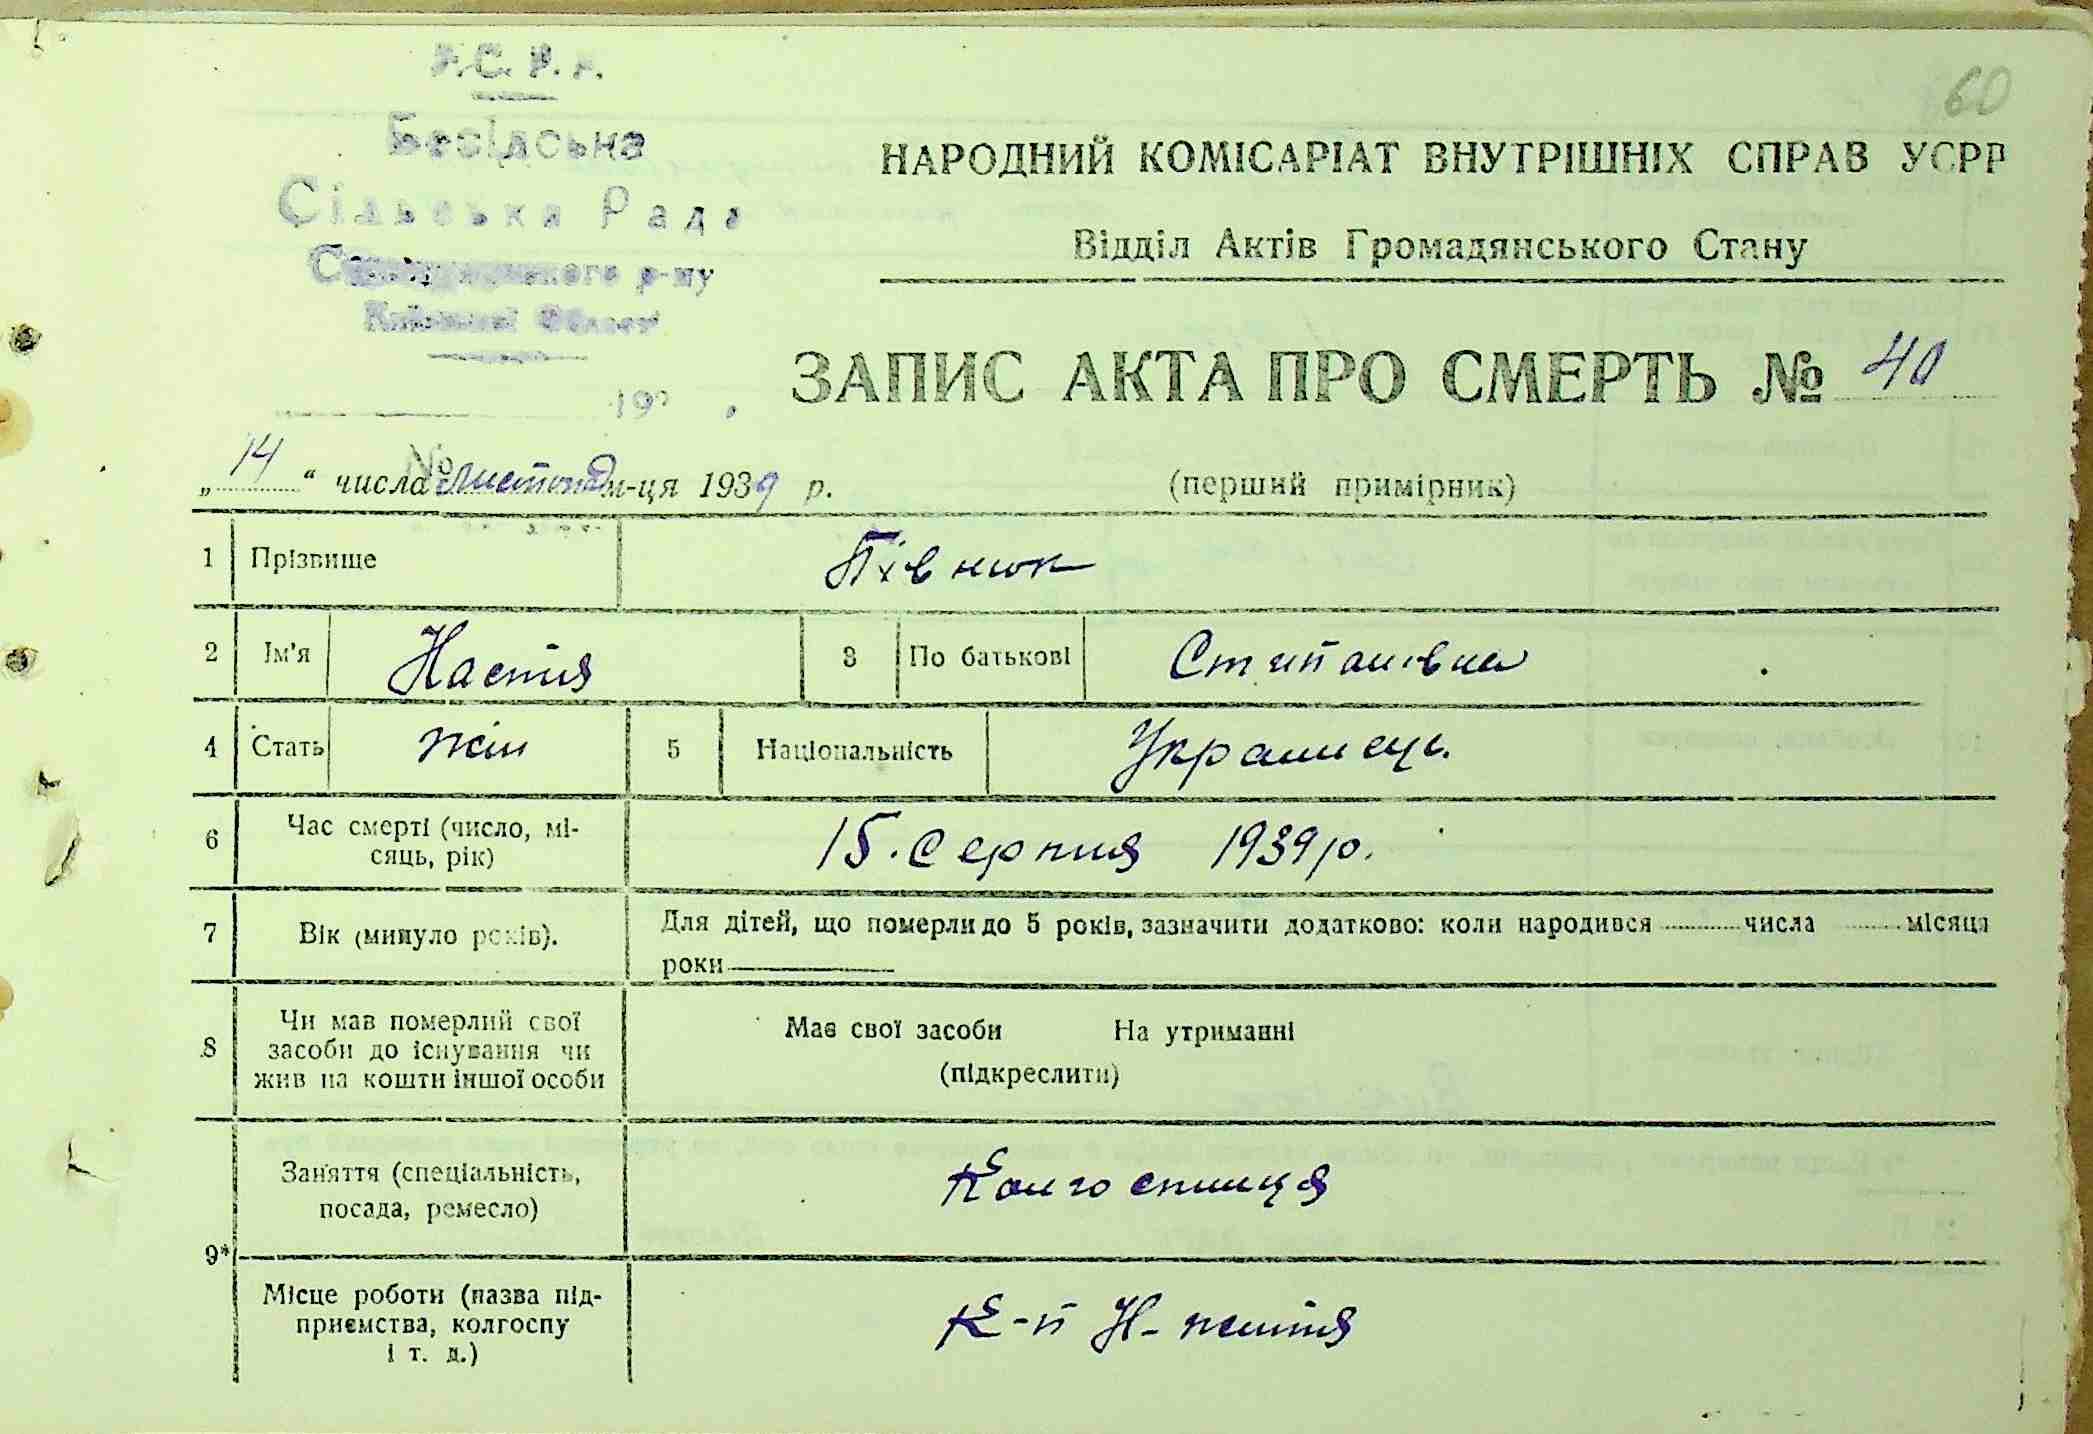 У.С.Р.Р.
Бесідська
Сільська Рада
р-ну
Київської Області
60
НАРОДНИЙ КОМІСАРІАТ ВНУТРІШНІХ СПРАВ УСРР
Відділ Актів Громадянського Стану
193 .
ЗАПИС АКТА ПРО СМЕРТЬ № 40
№
„14“ числа листопад м-ця 1939 р. (перший примірник)
1 Прізвище Півнюк
2 Ім'я Настя 3 По батькові Стипановна
4 Стать жін 5 Національність Українець.
6 Час смерті (число, мі-
сяць, рік) 15. Серпня 1939 р.
7 Вік (минуло років). Для дітей, що померли до 5 років, зазначити додатково: коли народився числа місяця
роки
8 Чи мав померлий свої
засоби до існування чи
жив на кошти іншої особи
Має свої засоби На утриманні
(підкреслити)
9* Заняття (спеціальність,
посада, ремесло) Колгоспниця
Місце роботи (назва під-
приємства, колгоспу
і т. д.) К-п Н-життя